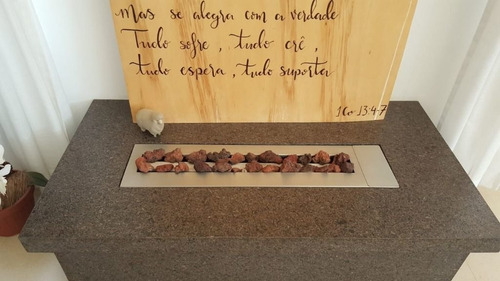 mas se alegra com a verdade
Tudo sofre, tudo crê,
tudo espera, tudo suporta
1Co 13:4-7